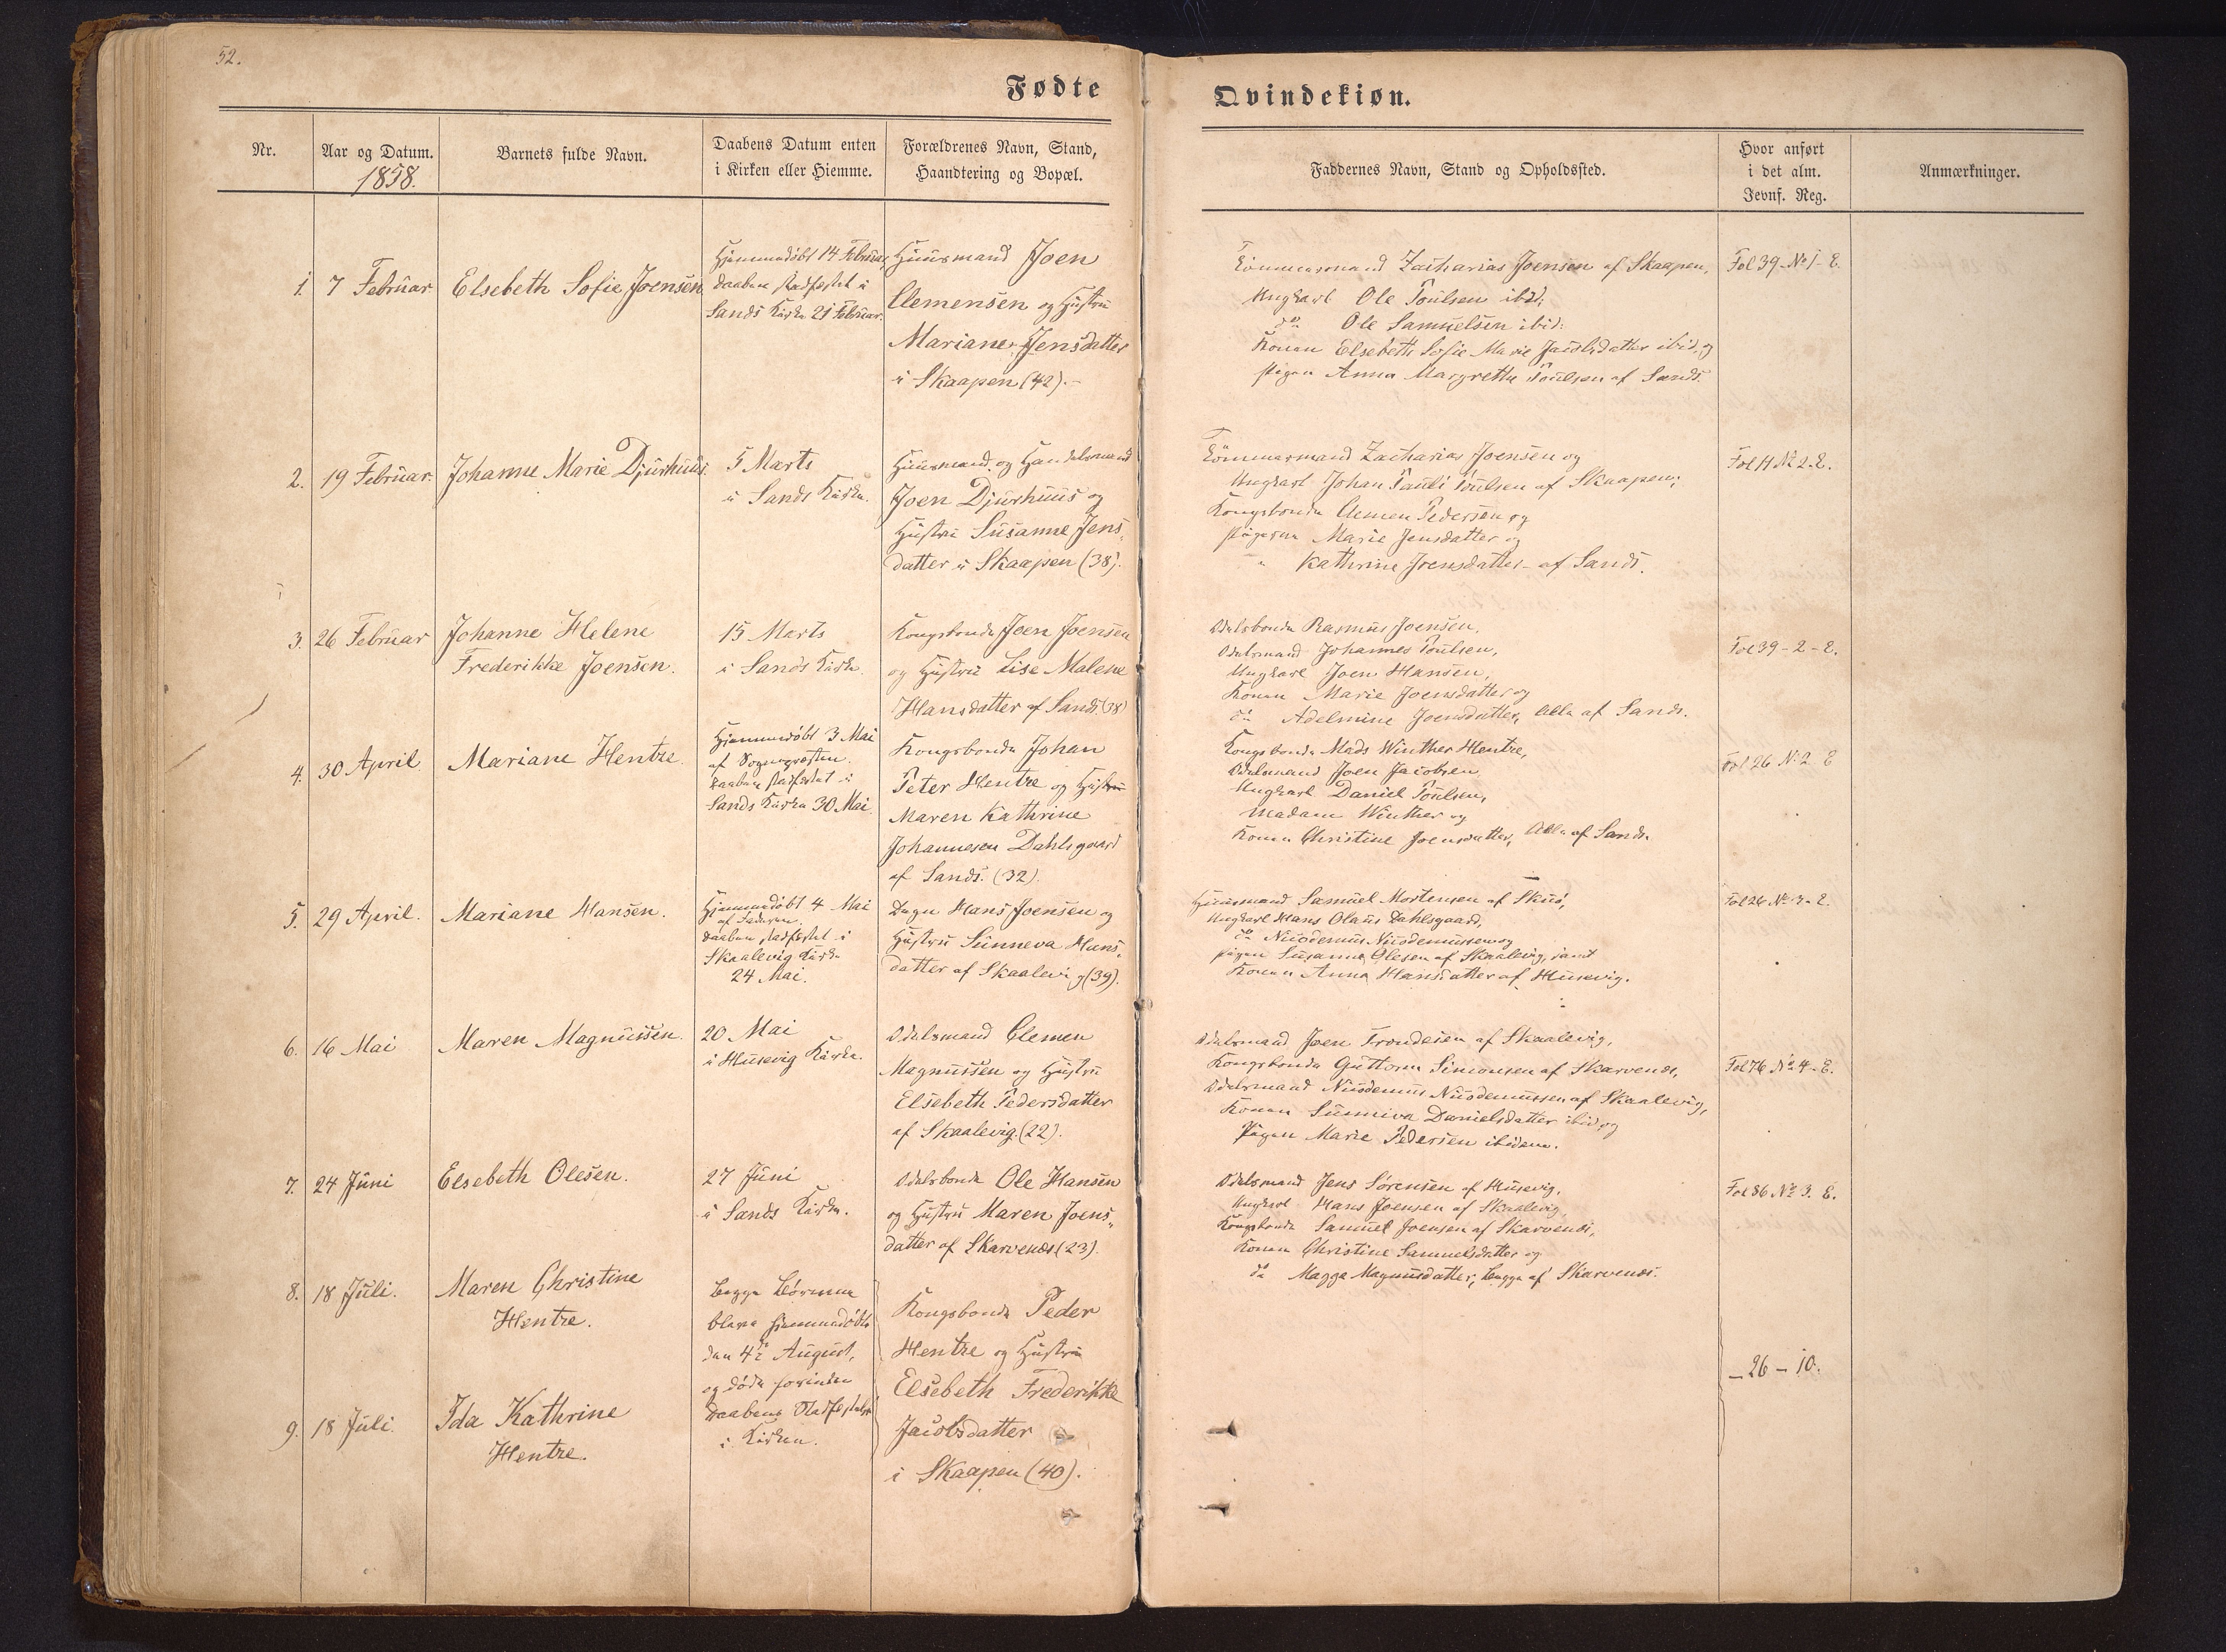 52.
Fødte
Qvindekiøn.
Nr.
Aar og Datum.
1858.
Barnets fulde Navn.
Daabens Datum enten
i Kirken eller Hiemme.
Forældrenes Navn, Stand,
Haandtering og Bopæl.
Faddernes Navn, Stand og Opholdssted.
Hvor anført
i det alm.
Jevnf. Reg.
Anmærkninger.
1. 7 Februar
Elsebeth Sofie Joensen
Hjemmedöbt 14 Februar,
Daaben stadfæstet i
Sands Kirke 21 Februar.
Huusmand Joen
Clemensen og Hustru
Mariane Jensdatter
i Skaapen (42).-
Tömmermand Zacharias Joensen af Skaapen,
Ungkarl Ole Poulsen ibid:
do Ole Samuelsen ibid:
Konen Elsebeth Sofie Marie Jacobsdatter ibid. og
Pigen Anna Margretha Poulsen af Sands.
Fol 39-No 1-E.
2. 19 Februar.
Johanne Marie Djurhuus.
5 Marts
i Sands Kirke.
Huusmand og Handelsmand
Joen Djurhuus og
Hustru Susanne Jens„
datter i Skaapen (38).
Tömmermand Zacharias Joensen og
Ungkarl Johan Pauli Poulsen af Skaapen;
Kongsbonde Clemen Pedersen og
Pigerne Marie Jensdatter og
" Kathrine Joensdatter af Sands.
Fol 11 No 2-E.
3. 26 Februar
Johanne Helene
Frederikke Joensen.
15 Marts
i Sands Kirke
Kongsbonde Joen Joensen
og Hustru Lise Malene
Hansdatter af Sands (38)
Odelsbonde Rasmus Joensen,
Odelsmand Johannes Poulsen,
Ungkarl Joen Hansen,
Konen Marie Joensdatter og
do Adelmine Joensdatter, Alle af Sands.
Fol 39-2-E.
4. 30 April
Mariane Hentze.
Hjemmedöbt 3 Mai
af Sognepræsten.
Daaben stadfæstet i
Sands Kirke 30 Mai.
Kongsbonde Johan
Peter Hentze og Hustru
Maren Kathrine
Johannesen Dahlsgaard
af Sands. (32).
Kongsbonde Mads Winther Hentze,
Odelsmand Joen Jacobsen
Ungkarl Daniel Poulsen,
Madam Winther og
Konen Christine Joensdatter, Alle af Sands.
Fol 26 No 2 E
5. 29 April.
Mariane Hansen.
Hjemmedöbt 4 Mai
af Faderen.
Daaben stadfæstet i
Skaalevig Kirke
24 Mai.
Hans Joensen og
Hustru Sunneva Hans„
datter af Skaalevig (39).
Huusmand Samuel Mortensen af Skuö,
Ungkarl Hans Olaus Dahlsgaard,
do Nicodemus Nicodemussen og
Pigen Susanna Olesen af Skaalevig, samt
Konen Anna Hansdatter af Husevig.
Fol 26 No 3-E.
6. 16 Mai
Maren Magnussen.
20 Mai
i Husevig Kirke.
Odelsmand Clemen
Magnussen og Hustru
Elsebeth Pedersdatter
af Skaalevig. (22).
Odelsmand Joen Trondesen af Skaalevig,
Kongsbonde Guttorm Simonsen af Skarvenæs,
Odelsmand Nicodemus Nicodemussen af Skaalevig,
Konen Sunniva Danielsdatter ibid. og
Pigen Marie Pedersen ibidem.
Fol 76 No 4-E.
7. 24 Juni
Elsebeth Olesen.
27 Juni
i Sands Kirke.
Odelsbonde Ole Hansen
og Hustru Maren Joens„
datter af Skarvenæs (23).
Odelsmand Jens Sörensen af Husevig,
Ungkarl Hans Joensen af Skaalevig,
Kongsbonde Samuel Joensen af Skarvenæs,
Konen Christine Samuelsdatter og
do Magga Magnusdatter, begge af Skarvenæs.
Fol 86 No 3. E.
8. 18 Juli.
Maren Christine
Hentze.
9. 18 Juli.
Ida Kathrine
Hentze.
Begge Börnene
bleve hjemmedöbte
den 4de August,
og döde forinden
Daabens Stadfæstelse
i Kirken.
Kongsbonde Peder
Hentze og Hustru
Elsebeth Frederikke
Jacobsdatter
i Skaapen (40).
— 26 — 10.